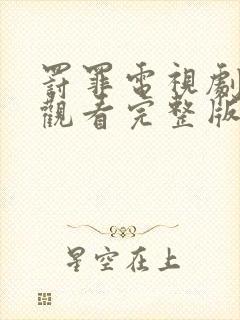 罸罪電視劇
觀看完整版
星空在上